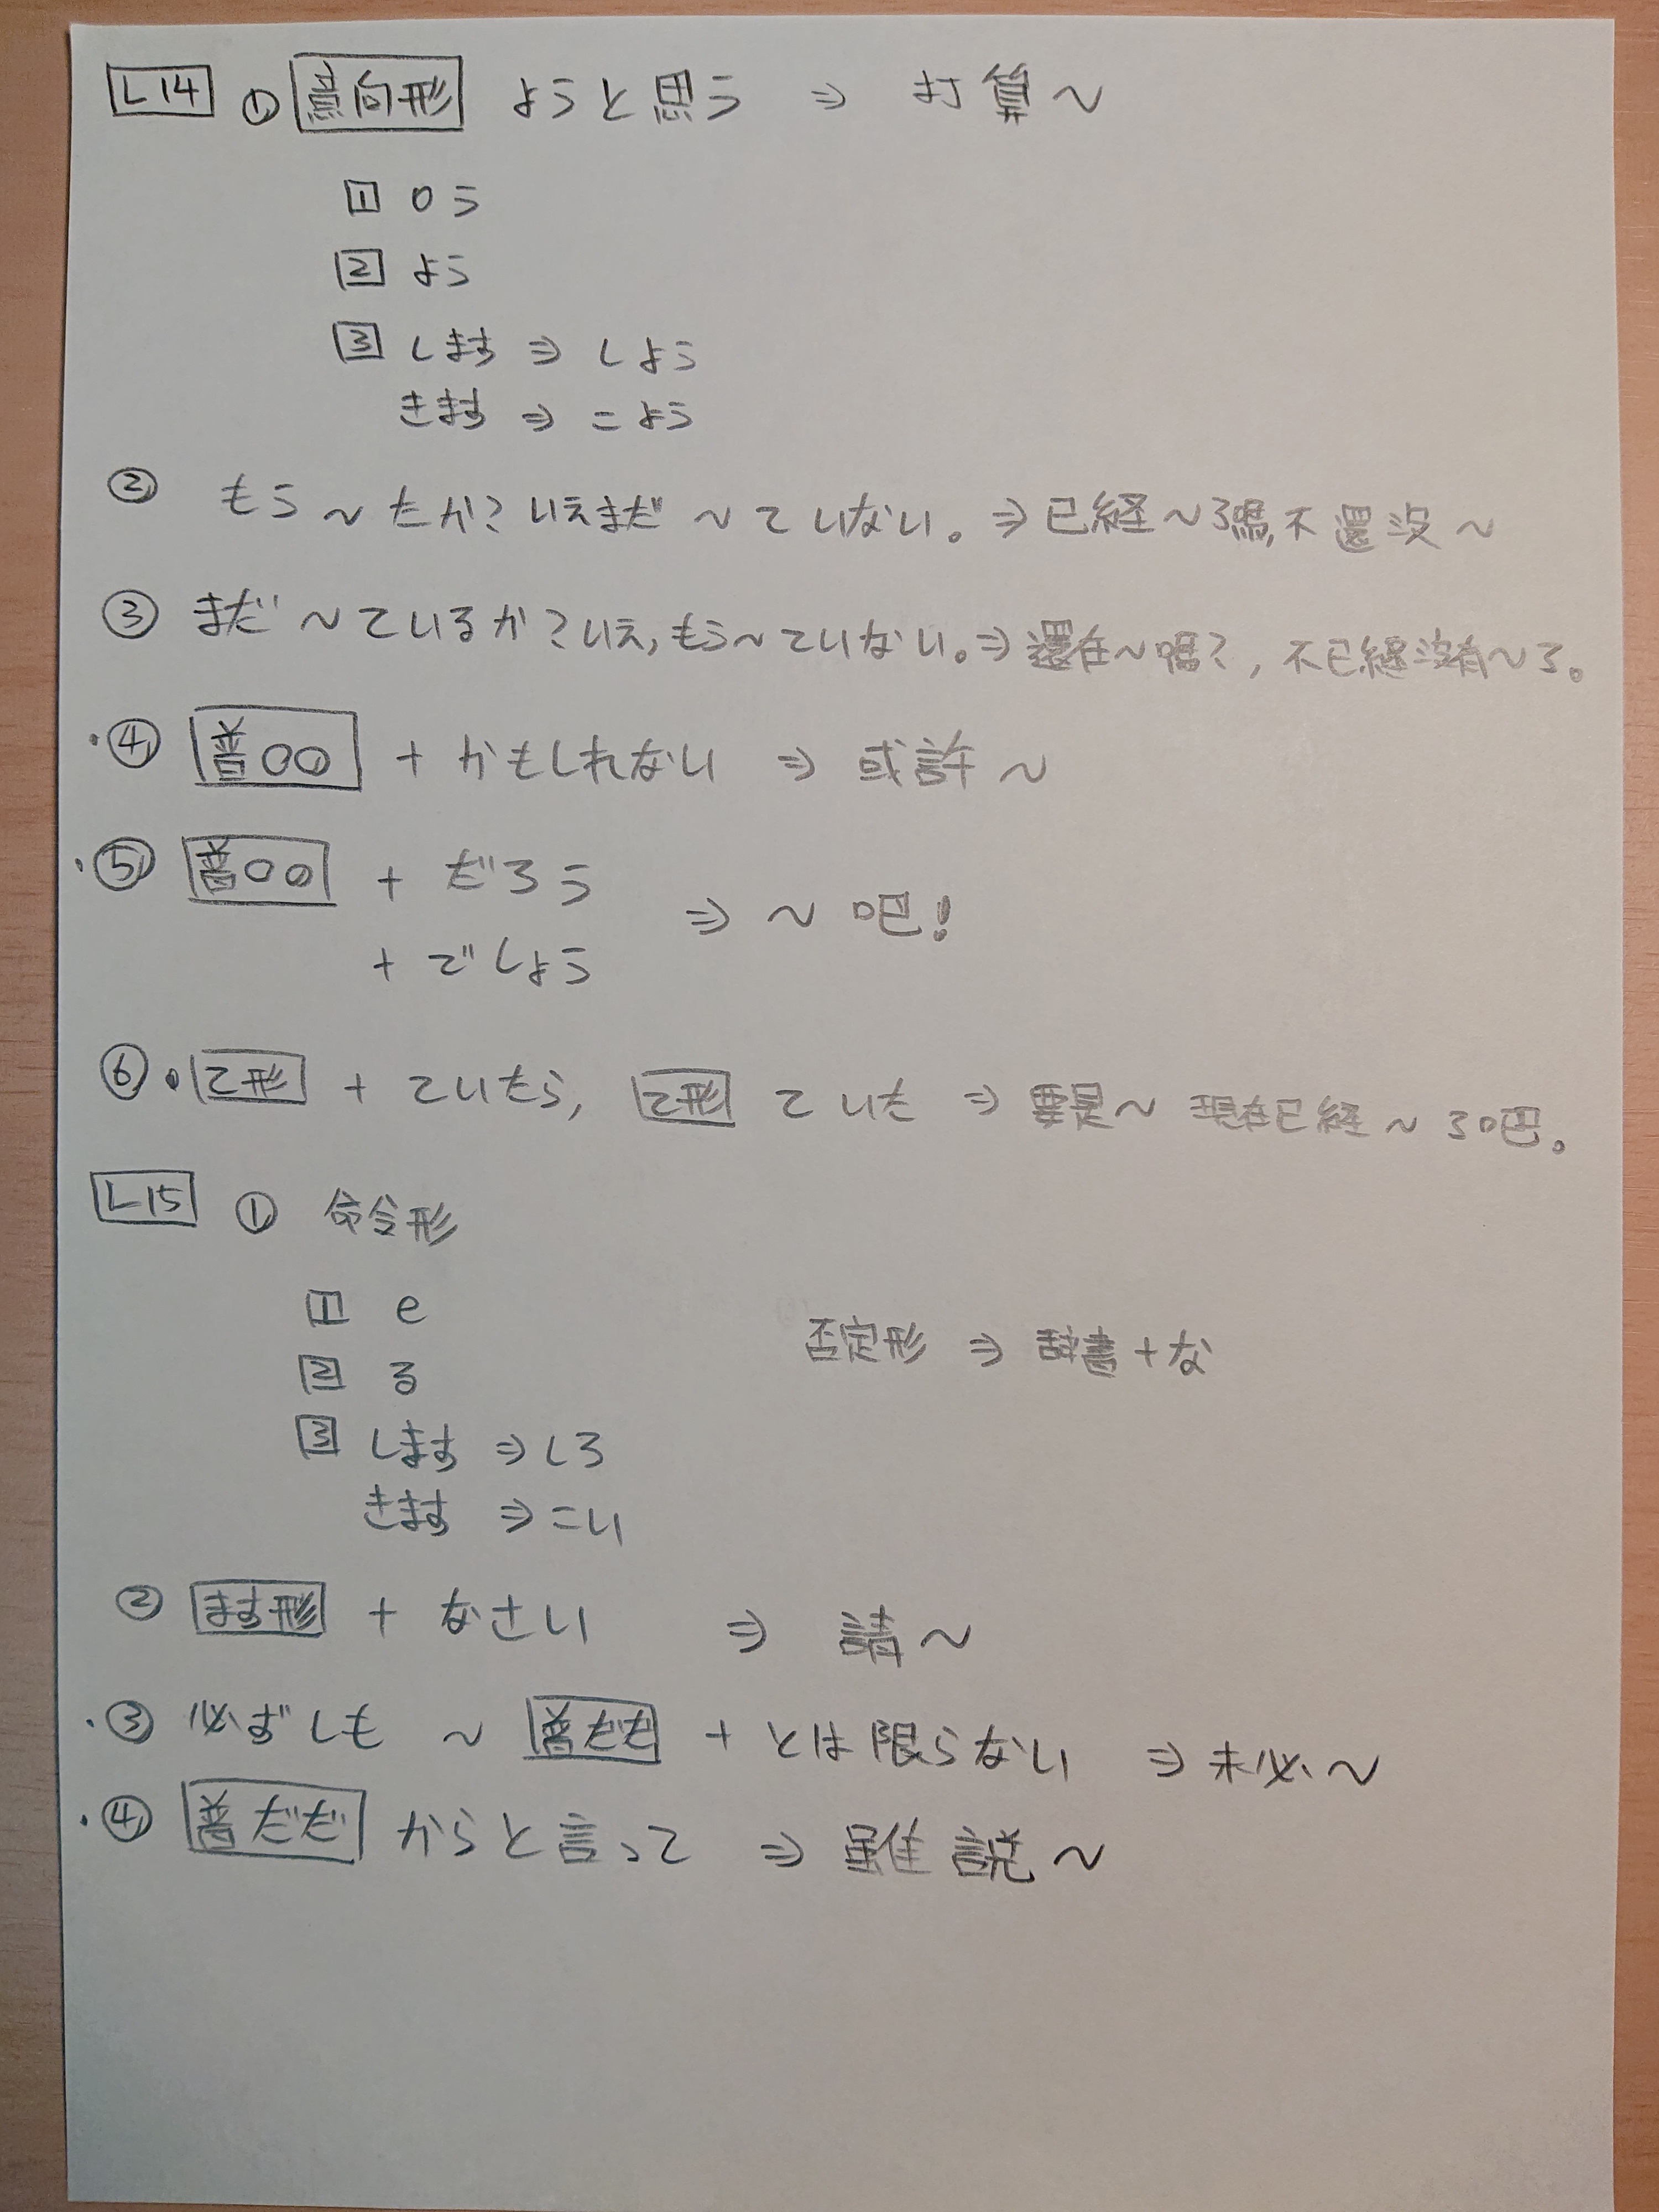 L14 ① 意向形 ようと思う ⇒ 打算～
1 oう
2 よう
3 します ⇒ しよう
きます ⇒ こよう
② もう～たか？いえまだ～ていない。⇒已経～了嗎,不還没～
③ まだ～ているか？いえ,もう～ていない。⇒還在～嗎？,不已経没有～了。
・④ 普〇〇 + かもしれない ⇒ 或許～
・⑤ 普〇〇 + だろう
⇒ ～吧!
+ でしょう
⑥・て形 + ていたら, て形 ていた ⇒ 要是～ 現在已経～了吧。
L15 ① 命令形
1 e
否定形 ⇒ 辞書+な
2 る
3 します ⇒しろ
きます ⇒こい
② ます形 + なさい ⇒ 請～
・③ 必ずしも ～ 普だだ + とは限らない ⇒ 未必～
・④ 普だだ からと言って ⇒ 雖説～